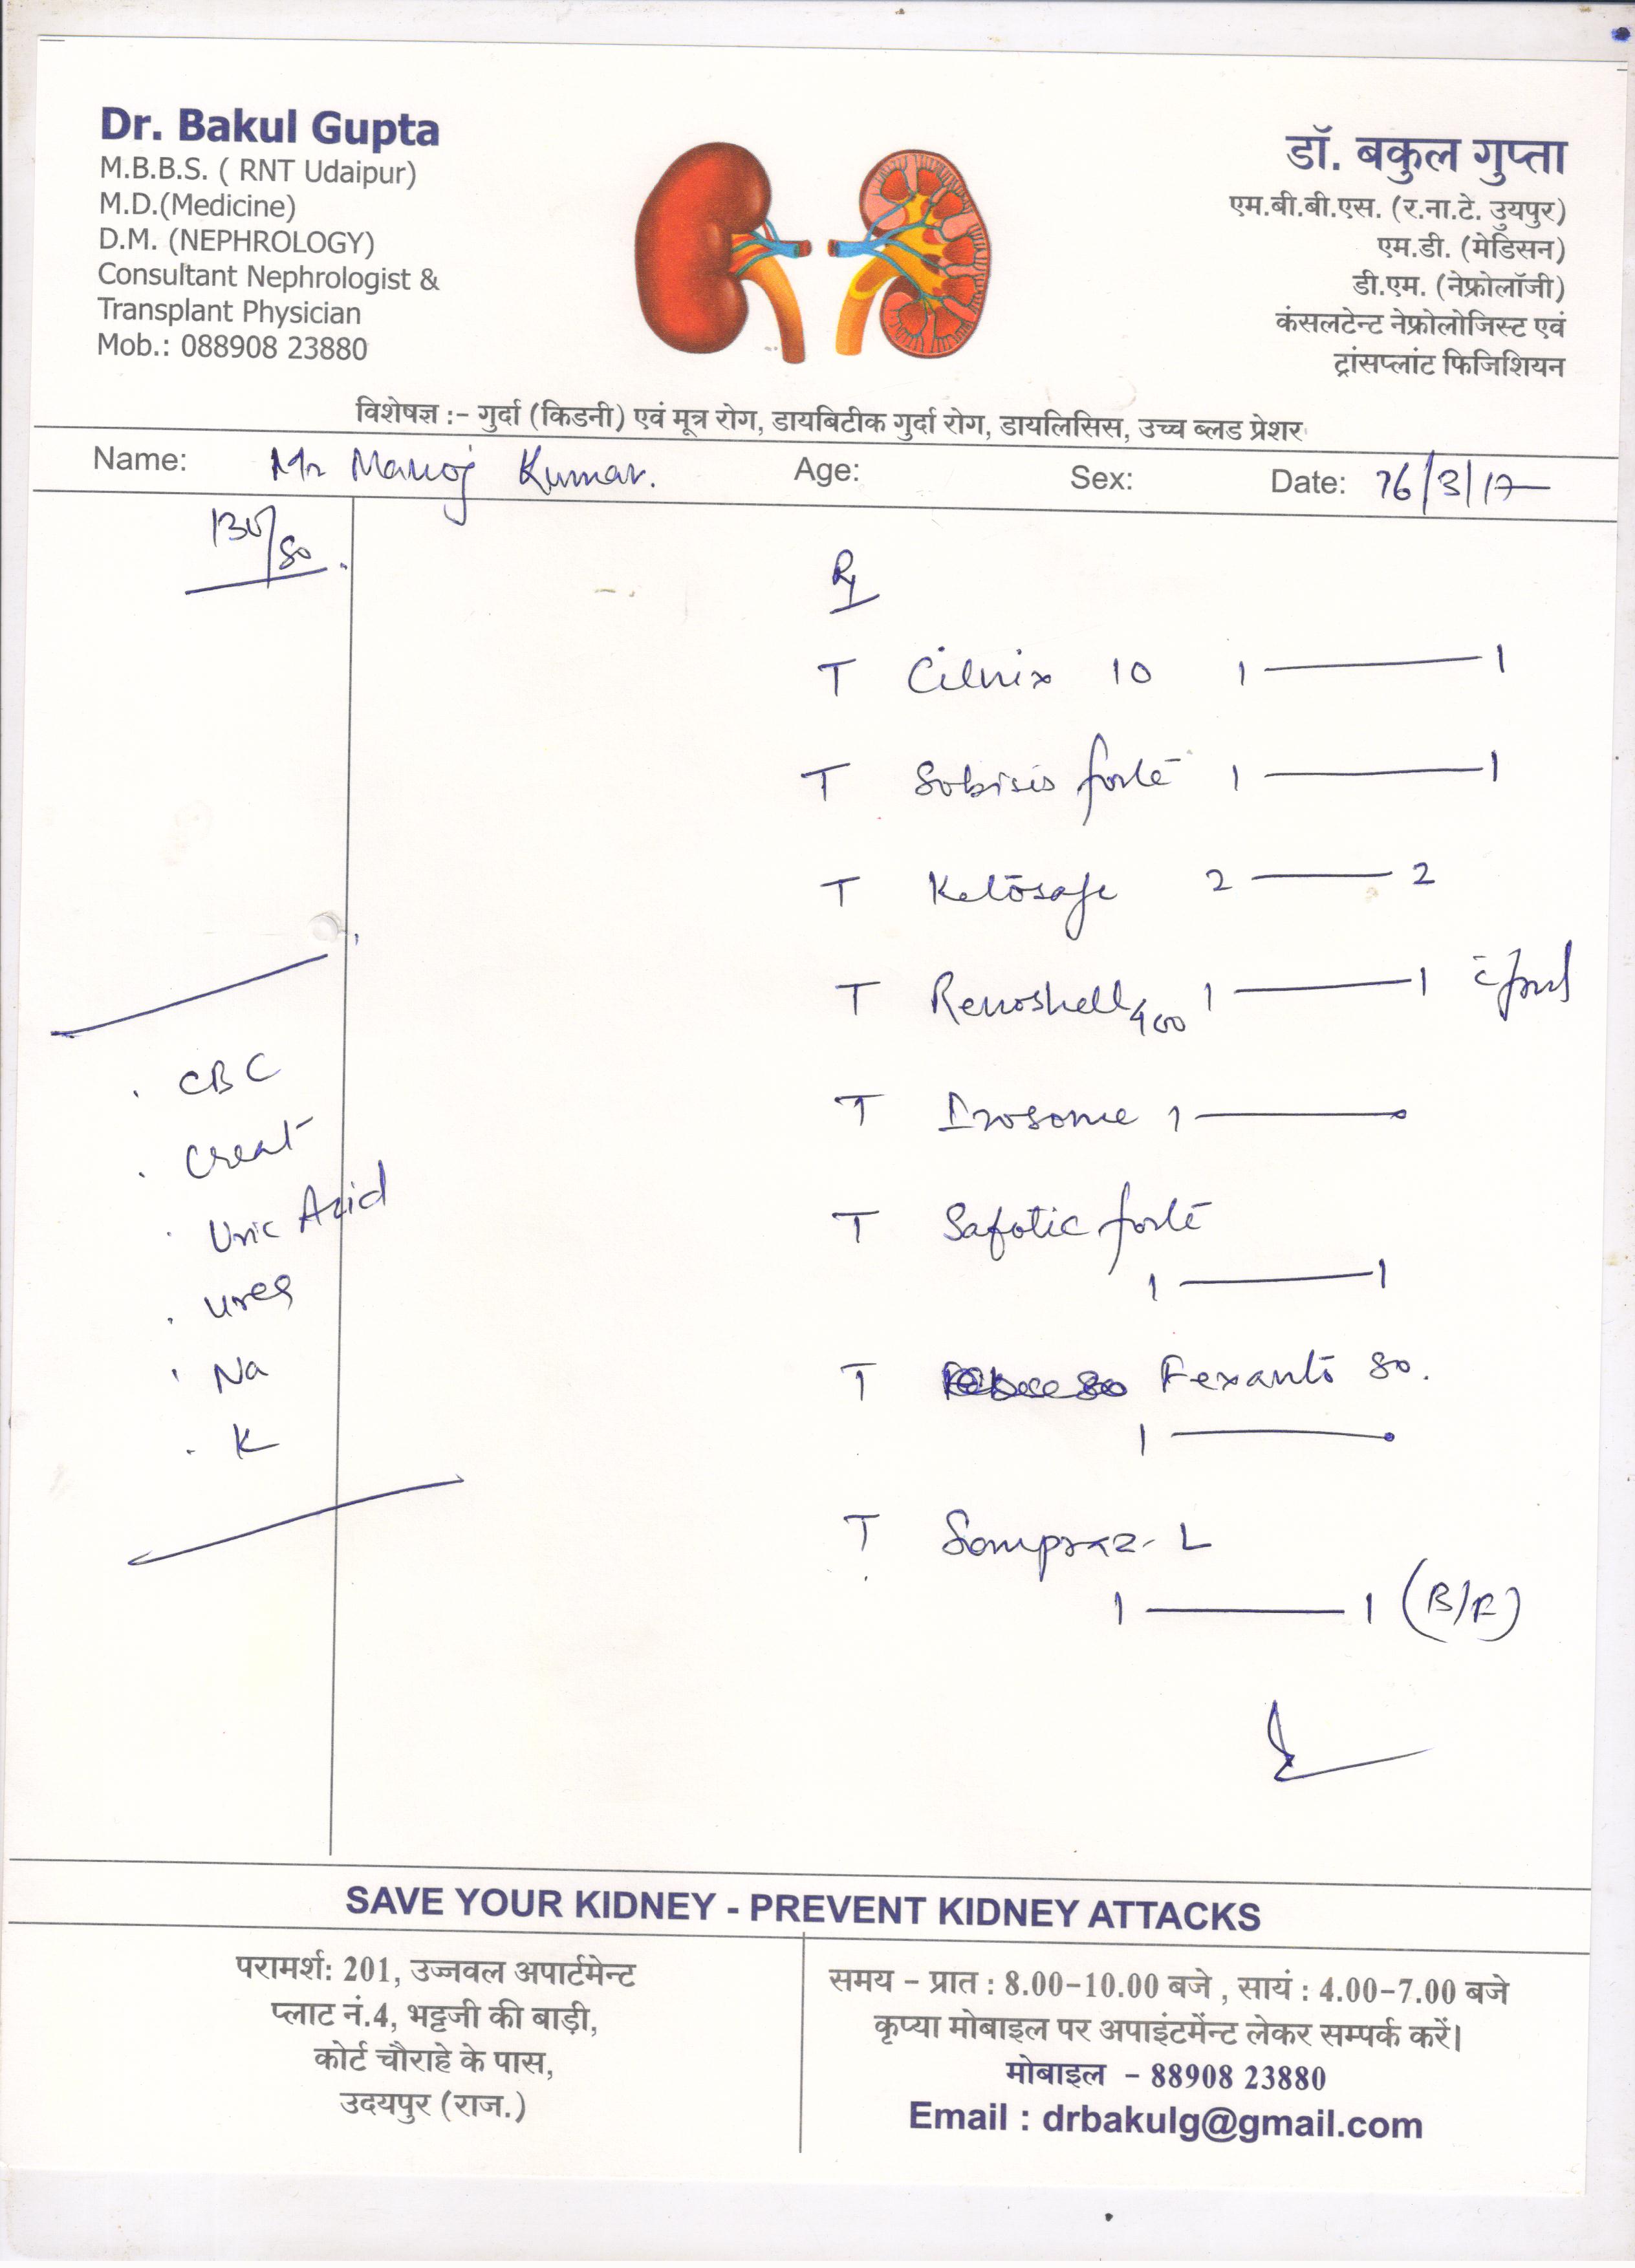 Dr. Bakul Gupta
M.B.B.S. ( RNT Udaipur)
M.D.(Medicine)
D.M. (NEPHROLOGY)
Consultant Nephrologist &
Transplant Physician
Mob.: 088908 23880
डॉ. बकुल गुप्ता
एम.बी.बी.एस. (र.ना.टे. उुयपुर)
एम.डी. (मेडिसन)
डी.एम. (नेफ्रोलॉजी)
कंसलटेन्ट नेफ्रोलोजिस्ट एवं
ट्रांसप्लांट फिजिशियन
विशेषज्ञ :- गुर्दा (किडनी) एवं मूत्र रोग, डायबिटीक गुर्दा रोग, डायलिसिस, उच्च ब्लड प्रेशर
Name: Mr Manoj Kumar. Age: Sex: Date: 16/3/17
130/80
CBC
Creat
Uric Acid
urea
Na
K
Rx
T Cilnix 10 1 — 1
T Sobisis forte 1 — 1
T Ketosafe 2 — 2
T Renoshell 400 1 — 1 c̄ food
T Irosome 1 —
T Safotic forte
1 — 1
T Fexanto 80.
1 —
T Sompraz-L
1 — 1 (B/F)
SAVE YOUR KIDNEY - PREVENT KIDNEY ATTACKS
परामर्श: 201, उज्जवल अपार्टमेन्ट
प्लाट नं.4, भट्टजी की बाड़ी,
कोर्ट चौराहे के पास,
उदयपुर (राज.)
समय - प्रात : 8.00-10.00 बजे , सायं : 4.00-7.00 बजे
कृप्या मोबाइल पर अपाइंटमेंन्ट लेकर सम्पर्क करें।
मोबाइल - 88908 23880
Email : drbakulg@gmail.com